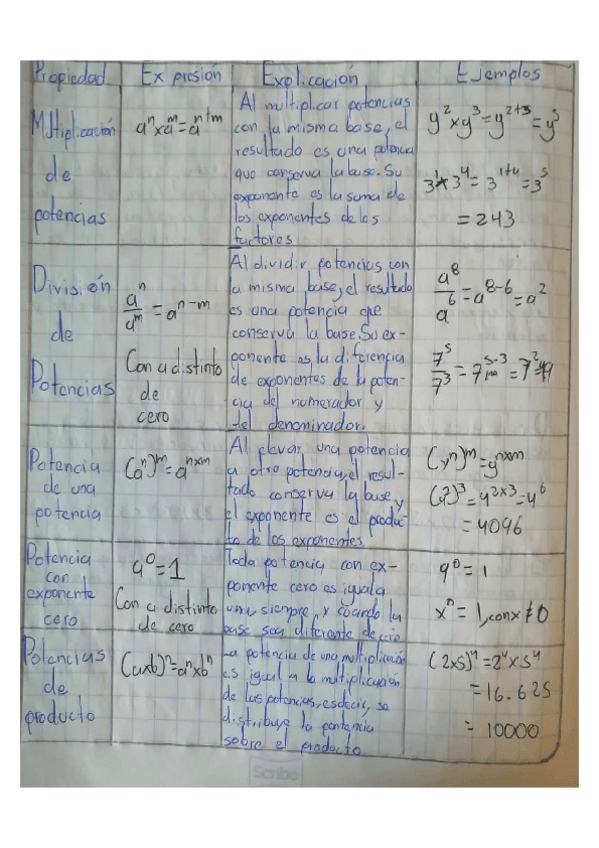 Propiedad Expresión Explicación Ejemplos
Mltiplicación
de
potencias
aⁿxaᵐ=aⁿ⁺ᵐ
Al multiplicar potencias
con la misma base, el
resultado es una potencia
que conserva la base. Su
exponente es la suma de
los exponentes de los
factores
y²xy³=y²⁺³=y⁵
3¹x3⁴=3¹⁺⁴=3⁵
=243
División
de
Potencias
aⁿ/aᵐ=aⁿ⁻ᵐ
Con a distinto
de
cero
Al dividir potencias con
la misma base, el resultado
es una potencia que
conserva la base. Su ex-
ponente es la diferencia
de exponentes de la poten-
cia del numerador y
del denominador.
a⁸/a⁶=a⁸⁻⁶=a²
7⁵/7³=7⁵⁻³=7²=49
Potencia
de una
potencia
(aⁿ)ᵐ=aⁿˣᵐ
Al elevar una potencia
a otra potencia, el resul-
tado conserva la base y
el exponente es el produc-
to de los exponentes
(yⁿ)ᵐ=yⁿˣᵐ
=4²ˣ³=4⁶
=4096
Potencia
con
exponente
cero
a⁰=1
Con a distinto
de cero
Toda potencia con ex-
ponente cero es igual a
uno siempre, y cuando la
base sea diferente de cero
9⁰=1
=1, con x≠0
Potencias
de
producto
(axb)ⁿ=aⁿxbⁿ
La potencia de una multiplicación
es igual a la multiplicación
de las potencias, es decir, se
distribuye la
sobre el producto
(2x5)⁴=2⁴x5⁴
=16.625
=10000
Scribe